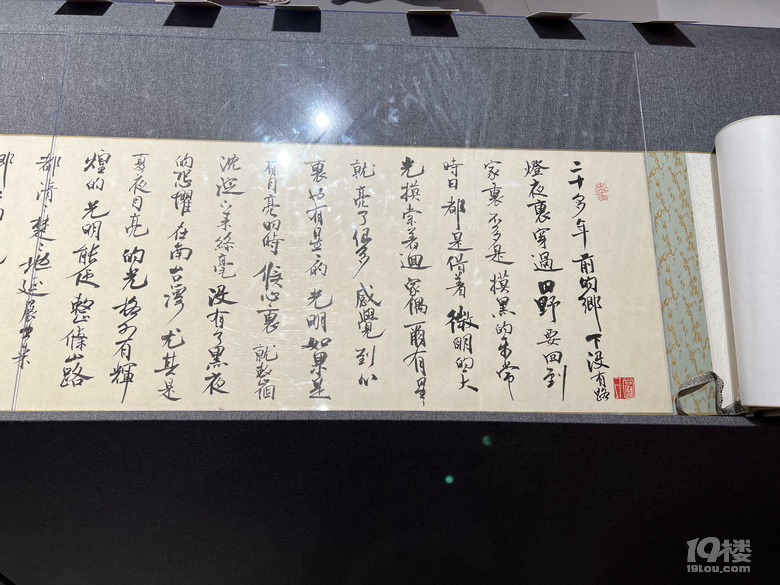 二十多年前的鄉下没有路
燈夜裏穿過田野要回到
家裏不多是摸黑的平常
時日都是借著微明的天
光摸索著迴家偶爾有星
就亮了很多感覺到心
裏也有星的光明如果是
有月亮的時候心裏就整個
沈淀下来絲毫没有了黑夜
的恐懼在南台灣尤其是
夏夜月亮的光格外有輝
煌的光明能使整條山路
都清楚地延展出来
19楼
19lou.com